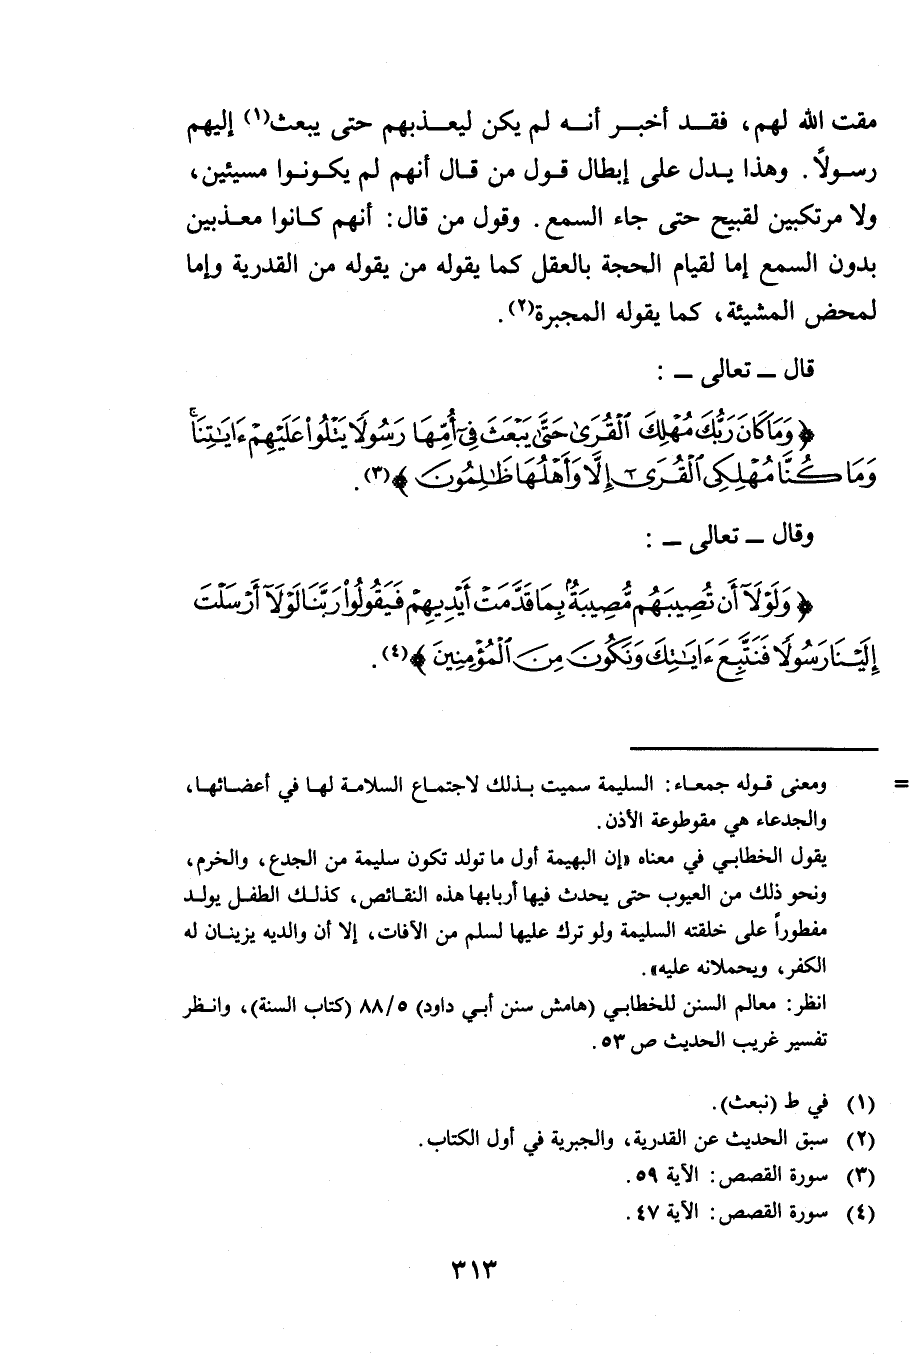 مقت الله لهم، فقد أخبر أنه لم يكن ليعذبهم حتى يبعث(١) إليهم
رسولاً. وهذا يدل على إبطال قول من قال أنهم لم يكونوا مسيئين،
ولا مرتكبين لقبيح حتى جاء السمع. وقول من قال: أنهم كانوا معذبين
بدون السمع إما لقيام الحجة بالعقل كما يقوله من يقوله من القدرية وإما
لمحض المشيئة، كما يقوله المجبرة(٢).
قال ــ تعالى ــ :
﴿وَمَا كَانَ رَبُّكَ مُهْلِكَ ٱلْقُرَىٰ حَتَّىٰ يَبْعَثَ فِىٓ أُمِّهَا رَسُولًا يَتْلُوا۟ عَلَيْهِمْ ءَايَـٰتِنَا ۚ
وَمَا كُنَّا مُهْلِكِى ٱلْقُرَىٰٓ إِلَّا وَأَهْلُهَا ظَـٰلِمُونَ﴾(٣).
وقال ــ تعالى ــ :
﴿وَلَوْلَآ أَن تُصِيبَهُم مُّصِيبَةٌۢ بِمَا قَدَّمَتْ أَيْدِيهِمْ فَيَقُولُوا۟ رَبَّنَا لَوْلَآ أَرْسَلْتَ
إِلَيْنَا رَسُولًا فَنَتَّبِعَ ءَايَـٰتِكَ وَنَكُونَ مِنَ ٱلْمُؤْمِنِينَ﴾(٤).
= ومعنى قوله جمعاء: السليمة سميت بذلك لاجتماع السلامة لها في أعضائها،
والجدعاء هي مقوطوعة الأذن.
يقول الخطابي في معناه «إن البهيمة أول ما تولد تكون سليمة من الجدع، والخرم،
ونحو ذلك من العيوب حتى يحدث فيها أربابها هذه النقائص، كذلك الطفل يولد
مفطوراً على خلقته السليمة ولو ترك عليها لسلم من الآفات، إلا أن والديه يزينان له
الكفر، ويحملانه عليه».
انظر: معالم السنن للخطابي (هامش سنن أبي داود) ٨٨/٥ (كتاب السنة)، وانظر
تفسير غريب الحديث ص ٥٣.
(١) في ط (نبعث).
(٢) سبق الحديث عن القدرية، والجبرية في أول الكتاب.
(٣) سورة القصص: الآية ٥٩.
(٤) سورة القصص: الآية ٤٧.
٣١٣